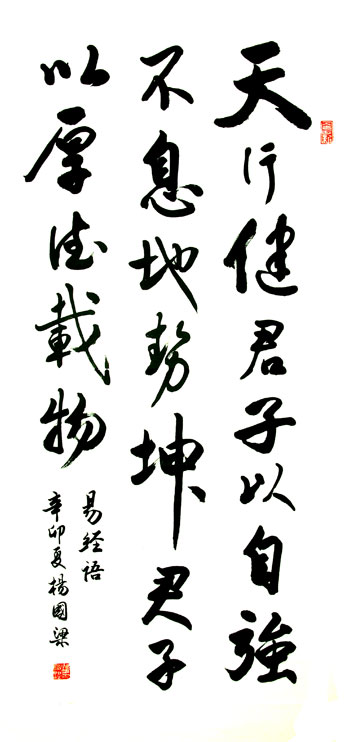 天行健君子以自強
不息地勢坤君子
以厚德載物
易經語
辛卯夏楊國梁